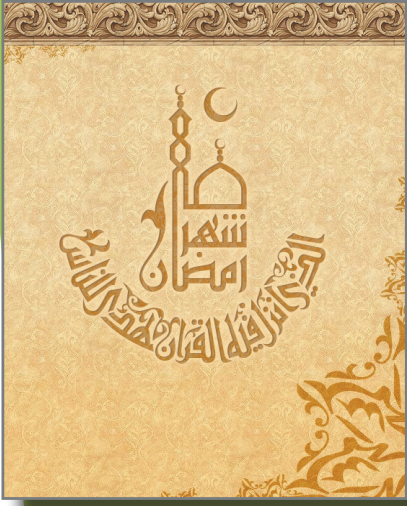 شهر
رمضان
الذي أنزل فيه القرآن هدى للناس